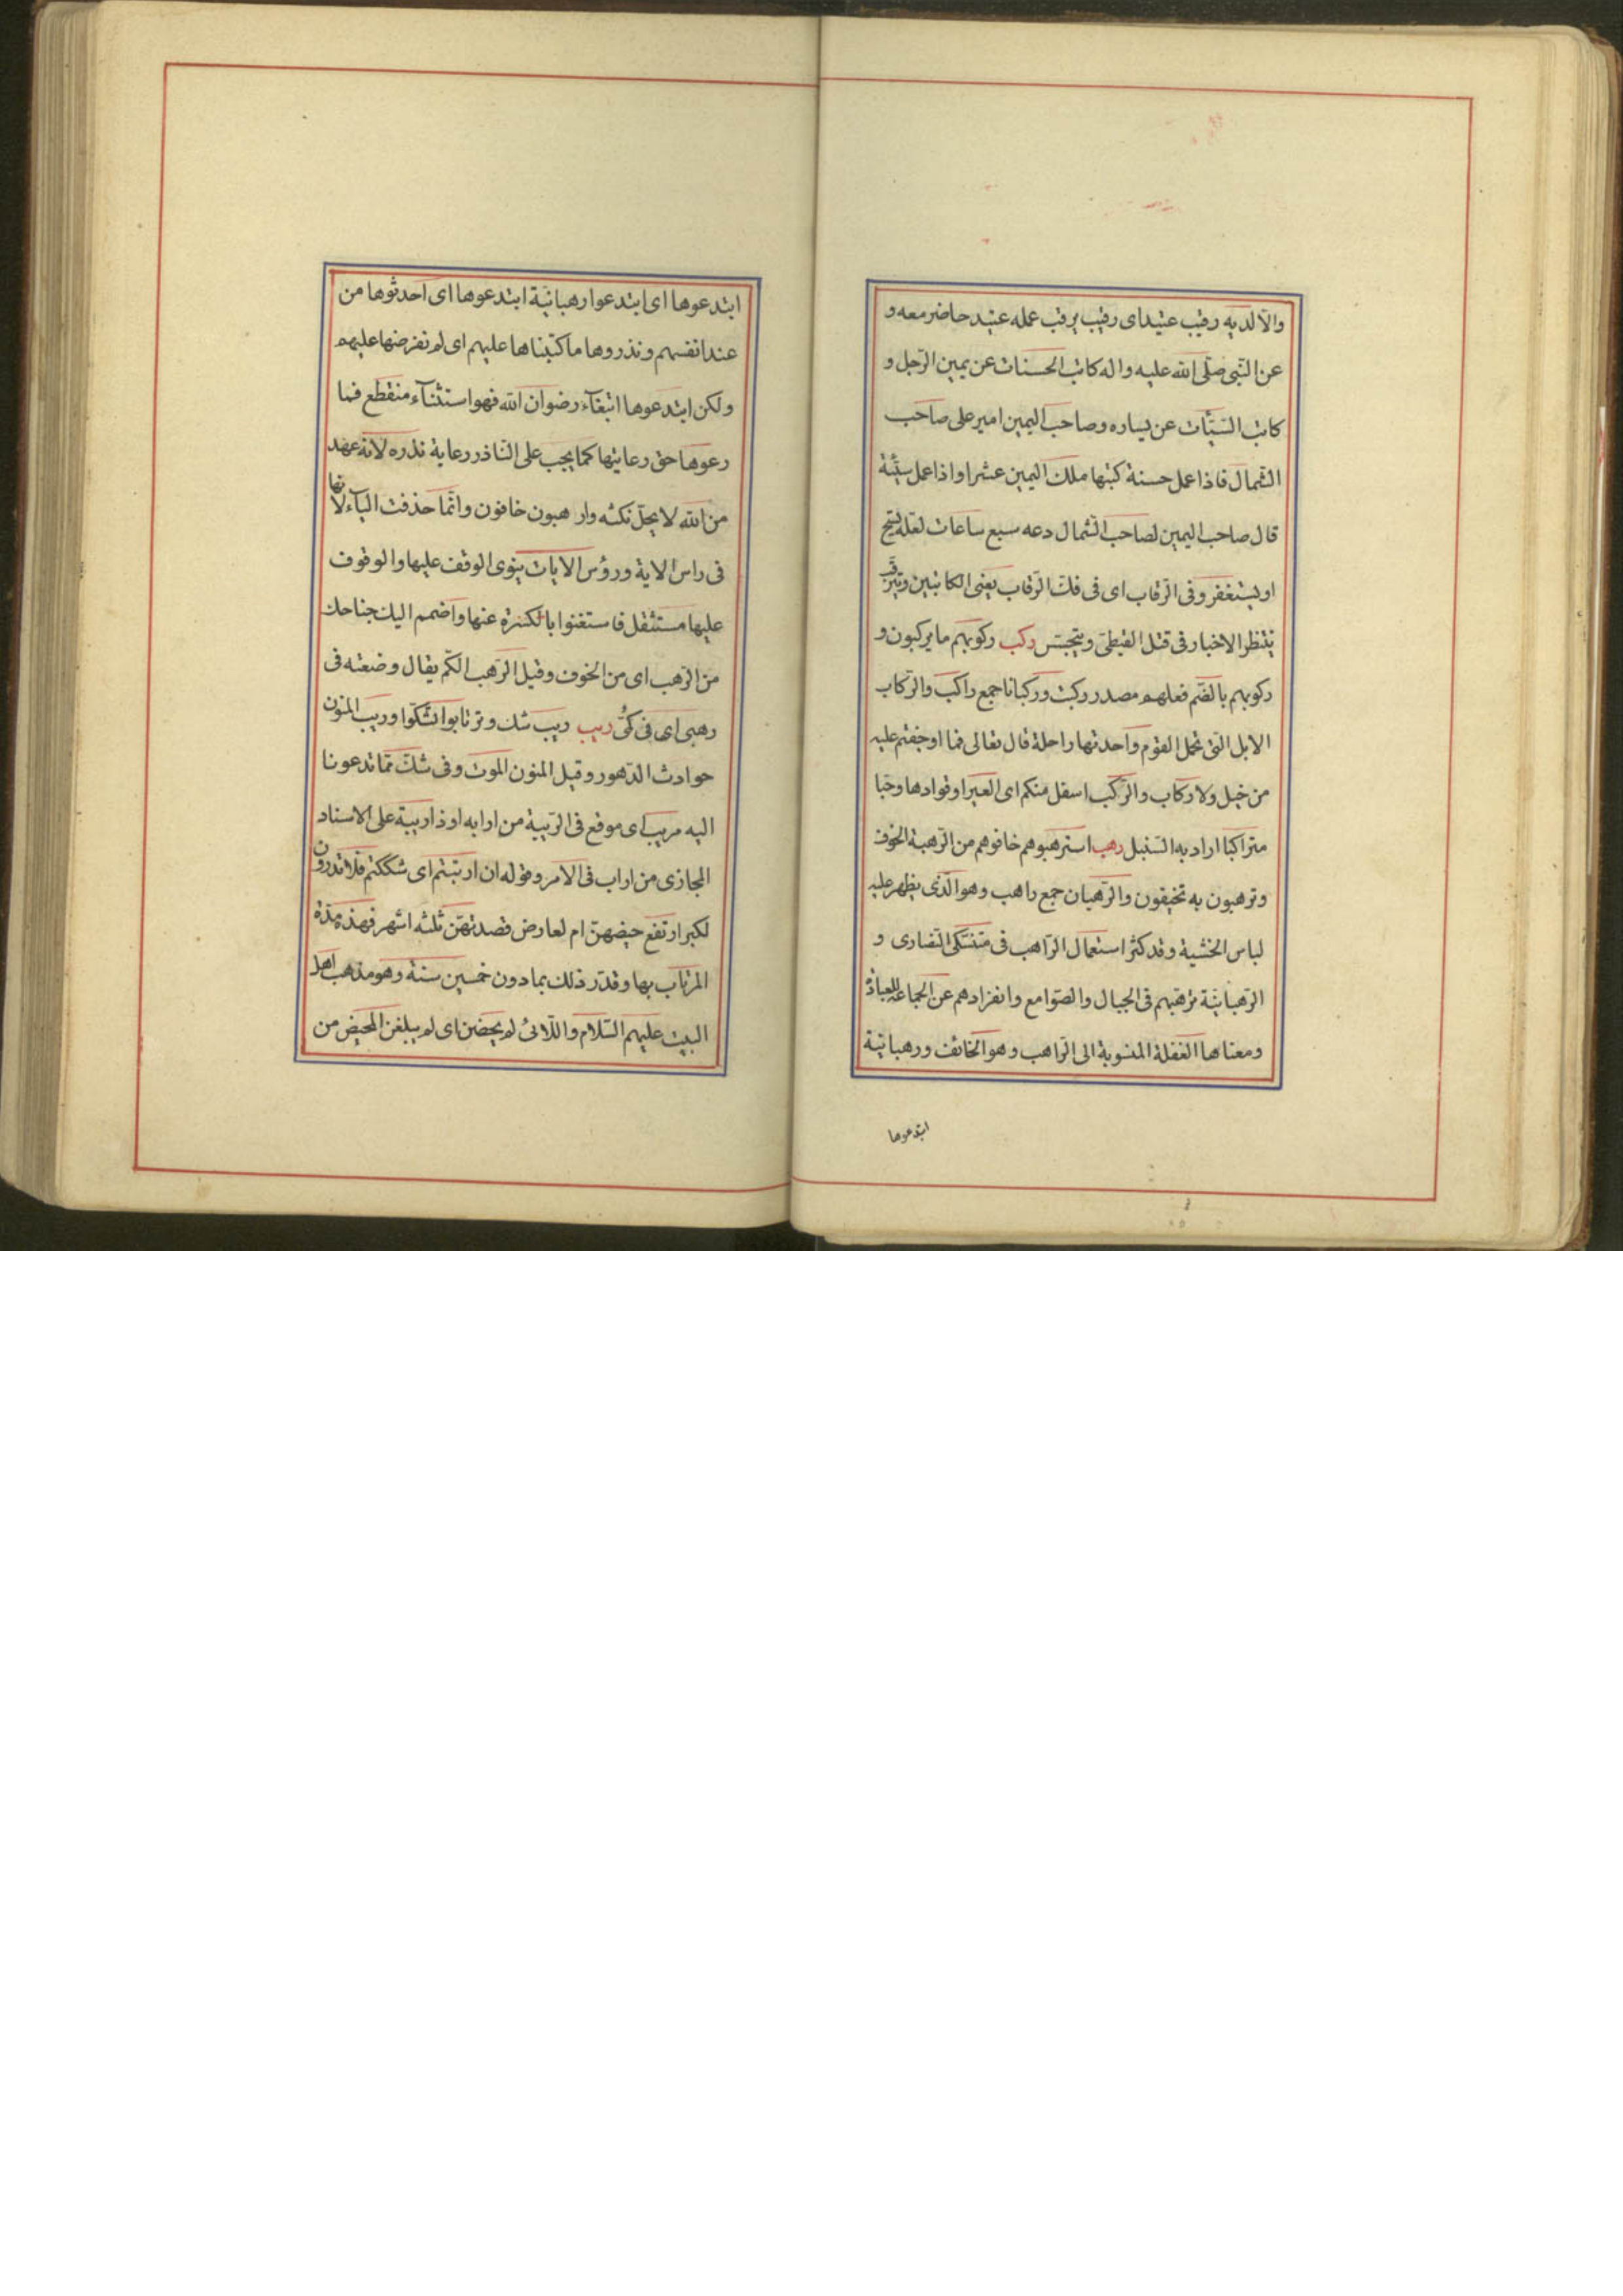 والّا لديه رقيب عتيد اى رقيب يرقب عمله عتيد حاضر معه و
عن النّبى صلّى الله عليه واله كاتب الحسنات عن يمين الرّجل و
كاتب السّيّئات عن يساره وصاحب اليمين امير على صاحب
الشّمال فاذا عمل حسنة كتبها ملك اليمين عشرا واذا عمل سيّئة
قال صاحب اليمين لصاحب الشّمال دعه سبع ساعات لعلّه يسبّح
او يستغفر وفى الرّقاب اى فى فكّ الرّقاب يعنى المكاتبين ويترقّب
ينتظر الاخبار فى قتل القبطىّ ويتجسّس ركب ركوبهم ما يركبون و
ركوبهم بالضّم فعلهم مصدر ركبت وركبانا جمع راكب والرّكاب
الابل الّتى تحمل القوم واحدتها راحلة قال تعالى فما اوجفتم عليه
من خيل ولا ركاب والرّكب اسفل منكم اى العير او قوادها وحبّا
متراكبا اراد به السّنبل رهب استرهبوهم خافوهم من الرّهبة الخوف
وترهبون به تخيفون والرّهبان جمع راهب وهو الّذى يظهر عليه
لباس الخشية وقد كثر استعمال الرّاهب فى متنسّكى النّصارى و
الرّهبانيّة ترهّبهم فى الجبال والصّوامع وانفرادهم عن الجماعة للعبادة
ومعناها الفعلة المنسوبة الى الرّاهب وهو الخائف ورهبانيّة
ابتدعوها
ابتدعوها اى ابتدعوا رهبانيّة ابتدعوها اى احدثوها من
عند انفسهم ونذروها ما كتبناها عليهم اى لم نفرضها عليهم
ولكن ابتدعوها ابتغاء رضوان الله فهو استثناء منقطع فما
رعوها حق رعايتها كما يجب على النّاذر رعاية نذره لانّه عهد
من الله لا يحلّ نكثه وارهبون خافون وانّما حذفت الياء لانّها
فى راس الاية ورؤس الايات ينوى الوقف عليها والوقوف
عليها مستثقل فاستغنوا بالكسرة عنها واضمم اليك جناحك
من الرّهب اى من الخوف وقيل الرّهب الكّم يقال وضعته فى
رهبى اى فى كمّى ريب ريب شك وترتابوا تشكّوا وريب المنون
حوادث الدّهور وقيل المنون الموت وفى شكّ ممّا تدعونا
اليه مريب اى موقع فى الرّيبة من ارابه او ذا ريبة على الاسناد
المجازى من اراب فى الامر وقوله ان ارتبتم اى شككتم فلا تدرون
لكبر ارتفع حيضهنّ ام لعارض فعدتهّن ثلثه اشهر فهذه مدّة
المرتاب بها وقدّر ذلك بما دون خمسين سنة وهو مذهب اهل
البيت عليهم السّلام واللّائى لم يحضن اى لم يبلغن المحيض من